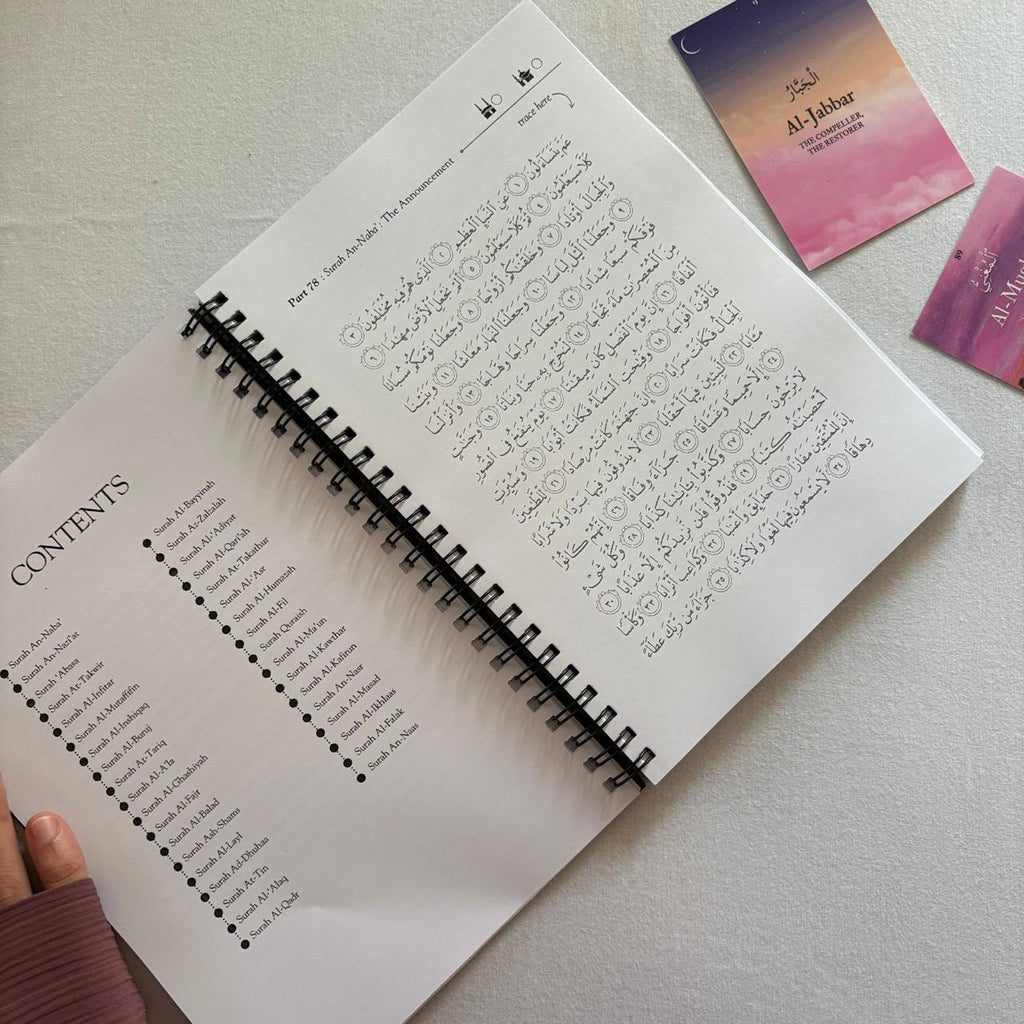 CONTENTS
Surah An-Naba'
Surah An-Nazi'at
Surah 'Abasa
Surah At-Takwir
Surah Al-Infitar
Surah Al-Mutaffifin
Surah Al-Inshiqaq
Surah Al-Buruj
Surah At-Tariq
Surah Al-A'la
Surah Al-Ghashiyah
Surah Al-Fajr
Surah Al-Balad
Surah Ash-Shams
Surah Al-Layl
Surah Ad-Dhuhaa
Surah At-Tin
Surah Al-'Alaq
Surah Al-Qadr
Surah Al-Bayyinah
Surah Az-Zalzalah
Surah Al-'Adiyat
Surah Al-Qari'ah
Surah At-Takathur
Surah Al-'Asr
Surah Al-Humazah
Surah Al-Fil
Surah Quraish
Surah Al-Ma'un
Surah Al-Kawthar
Surah Al-Kafirun
Surah An-Nasr
Surah Al-Masad
Surah Al-Ikhlaas
Surah Al-Falak
Surah An-Naas
Part 78 : Surah An-Naba': The Announcement
trace here
عَمَّ يَتَسَآءَلُونَ ١ عَنِ ٱلنَّبَإِ ٱلْعَظِيمِ ٢ ٱلَّذِى هُمْ فِيهِ مُخْتَلِفُونَ ٣
كَلَّا سَيَعْلَمُونَ ٤ ثُمَّ كَلَّا سَيَعْلَمُونَ ٥ أَلَمْ نَجْعَلِ ٱلْأَرْضَ مِهَٰدًا ٦
وَٱلْجِبَالَ أَوْتَادًا ٧ وَخَلَقْنَٰكُمْ أَزْوَٰجًا ٨ وَجَعَلْنَا نَوْمَكُمْ سُبَاتًا
٩ وَجَعَلْنَا ٱلَّيْلَ لِبَاسًا ١٠ وَجَعَلْنَا ٱلنَّهَارَ مَعَاشًا ١١ وَبَنَيْنَا
فَوْقَكُمْ سَبْعًا شِدَادًا ١٢ وَجَعَلْنَا سِرَاجًا وَهَّاجًا ١٣ وَأَنزَلْنَا
مِنَ ٱلْمُعْصِرَٰتِ مَآءً ثَجَّاجًا ١٤ لِّنُخْرِجَ بِهِۦ حَبًّا وَنَبَاتًا ١٥ وَجَنَّٰتٍ
أَلْفَافًا ١٦ إِنَّ يَوْمَ ٱلْفَصْلِ كَانَ مِيقَٰتًا ١٧ يَوْمَ يُنفَخُ فِى ٱلصُّورِ
فَتَأْتُونَ أَفْوَاجًا ١٨ وَفُتِحَتِ ٱلسَّمَآءُ فَكَانَتْ أَبْوَٰبًا ١٩ وَسُيِّرَتِ
ٱلْجِبَالُ فَكَانَتْ سَرَابًا ٢٠ إِنَّ جَهَنَّمَ كَانَتْ مِرْصَادًا ٢١ لِّلطَّٰغِينَ
مَـَٔابًا ٢٢ لَّٰبِثِينَ فِيهَآ أَحْقَابًا ٢٣ لَّا يَذُوقُونَ فِيهَا بَرْدًا وَلَا شَرَابًا
٢٤ إِلَّا حَمِيمًا وَغَسَّاقًا ٢٥ جَزَآءً وِفَاقًا ٢٦ إِنَّهُمْ كَانُوا۟
لَا يَرْجُونَ حِسَابًا ٢٧ وَكَذَّبُوا۟ بِـَٔايَٰتِنَا كِذَّابًا ٢٨ وَكُلَّ شَىْءٍ
أَحْصَيْنَٰهُ كِتَٰبًا ٢٩ فَذُوقُوا۟ فَلَن نَّزِيدَكُمْ إِلَّا عَذَابًا ٣٠
إِنَّ لِلْمُتَّقِينَ مَفَازًا ٣١ حَدَآئِقَ وَأَعْنَٰبًا ٣٢ وَكَوَاعِبَ أَتْرَابًا ٣٣ وَكَأْسًا
دِهَاقًا ٣٤ لَّا يَسْمَعُونَ فِيهَا لَغْوًا وَلَا كِذَّٰبًا ٣٥ جَزَآءً مِّن رَّبِّكَ عَطَآءً
9
ٱلْجَبَّارُ
Al-Jabbar
THE COMPELLER,
THE RESTORER
89
ٱلْمُغْنِيُّ